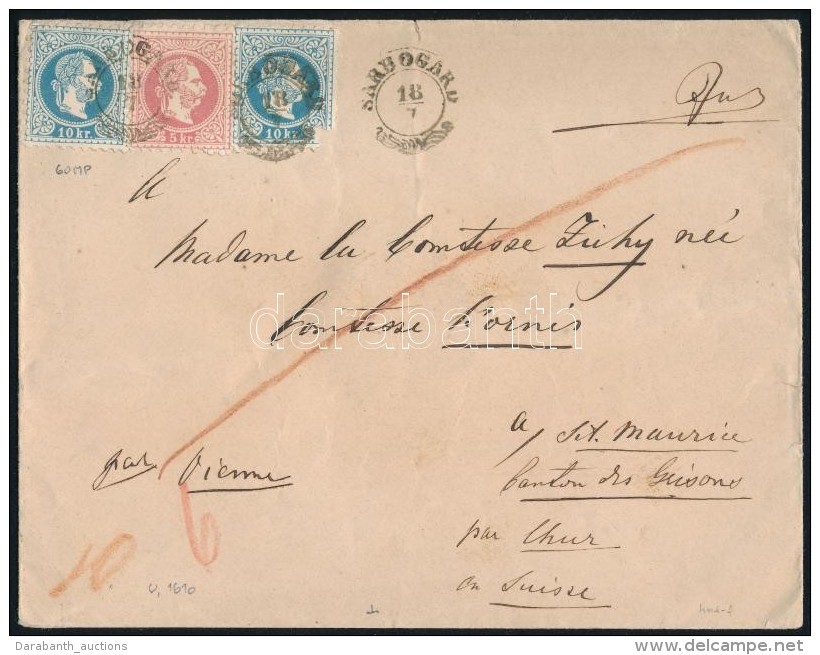 10 kr.
5 kr.
10 kr.
SÁRBOGÁRD
18
7
60MP
a
Madame la Comtesse Zichy née
Comtesse Kornis
darabanth
a, St. Maurice
par Vienne
Canton des Grisons
par Chur
en Suisse
6
10
Darabanth_auctions
www.delcampe.net